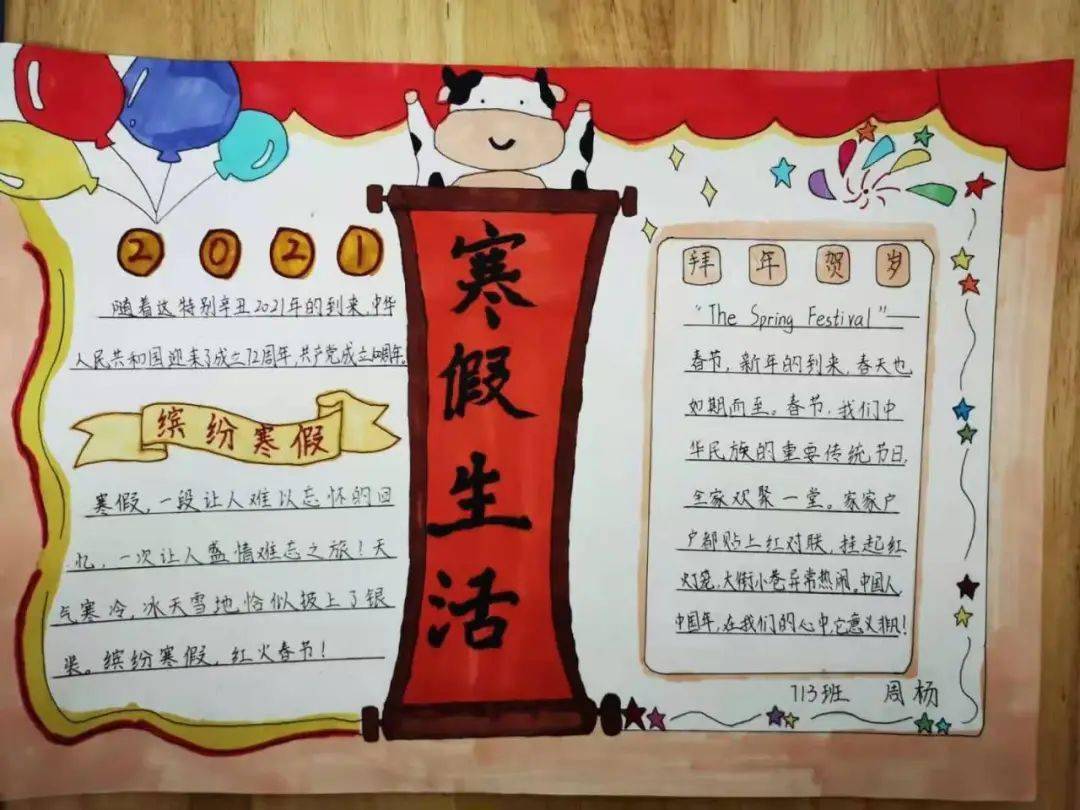 2021
随着这特别辛丑2021年的到来,中华
人民共和国迎来了成立72周年,共产党成立100周年,
缤纷寒假
寒假,一段让人难以忘怀的回
忆,一次让人盛情难忘之旅!天
气寒冷,冰天雪地,恰似披上了银
装。缤纷寒假,红火春节!
寒假生活
拜年贺岁
“The Spring Festival”——
春节,新年的到来,春天也
如期而至。春节,我们中
华民族的重要传统节日,
全家欢聚一堂。家家户
户都贴上红对联,挂起红
灯笼,大街小巷异常热闹。中国人
中国年,在我们的心中,它意义非凡!
713班 周杨